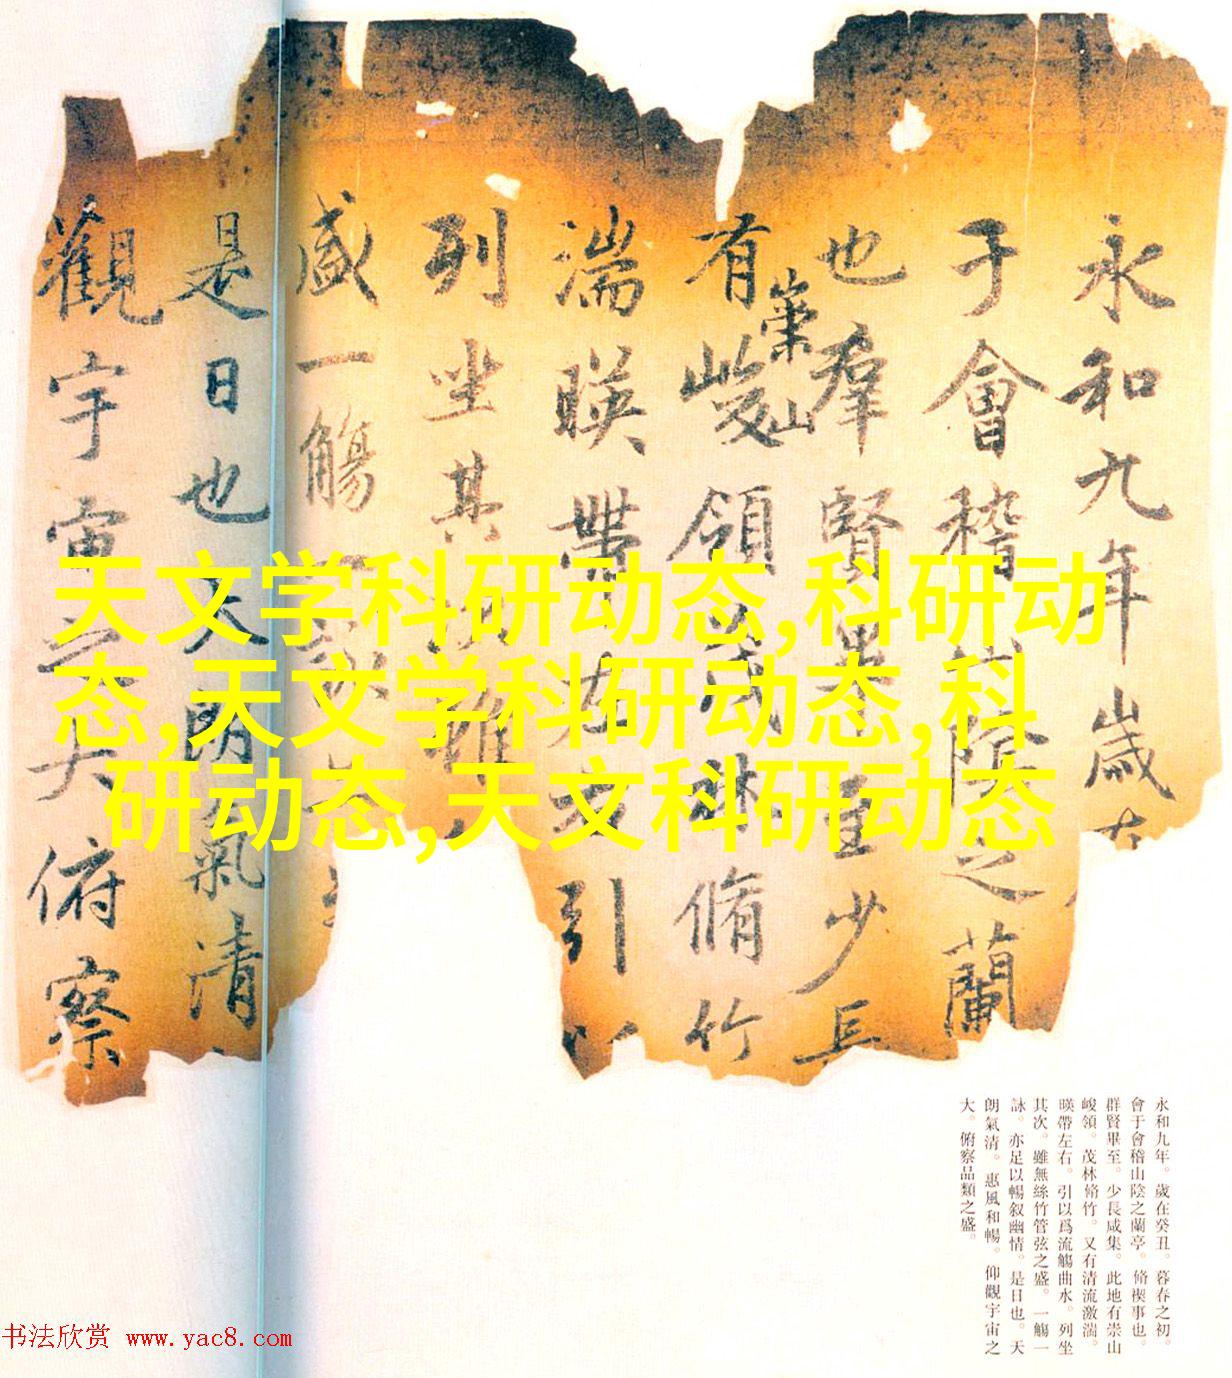 永和九年歲在
于會稽山陰之蘭
也羣賢畢至少長
有崇山峻領茂林脩竹
湍暎帶左右引以
列坐其次雖
盛一觴一詠
是日也天朗氣清
觀宇宙之大俯察
天文学科研动态,科研动
态,天文学科研动态,科
研动态,天文科研动态
永和九年。歲在癸丑。暮春之初。
會于會稽山陰之蘭亭。脩禊事也。
群賢畢至。少長咸集。此地有崇山
峻領。茂林脩竹。又有清流激湍。
暎帶左右。引以爲流觴曲水。列坐
其次。雖無絲竹管弦之盛。一觴一
詠。亦足以暢叙幽情。是日也。天
朗氣清。惠風和暢。仰觀宇宙之
大。俯察品類之盛。
书法欣赏 www.yac8.com